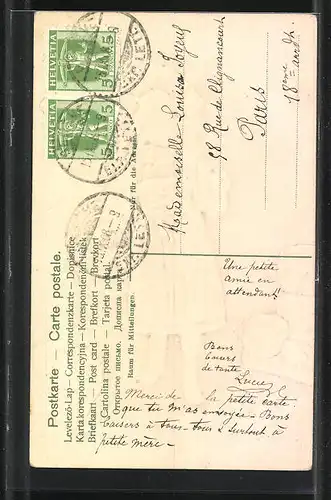 HELVETIA
5
5
HELVETIA
5
5
Postkarte. — Carte postale.
Levelező-Lap — Correspondenzkarte — Dopisnice
Karta korespondencyjna — Korespondenční lístek
Briefkaart — Post card — Brefkort — Brevkort
Cartolina postale — Tarjeta postal.
Открытое письмо. Дописна
Raum für Mitteilungen.
Nur für die Adresse.
Mademoiselle Louise
98 Rue de Clignancourt
Paris
18eme ardt.
Une petite
amie en
attendant!!
Bons
de tante
Lucie
Merci de la petite carte
que tu m'as envoyée. Bons
baisers à tous - tous & surtout à
petite mère -